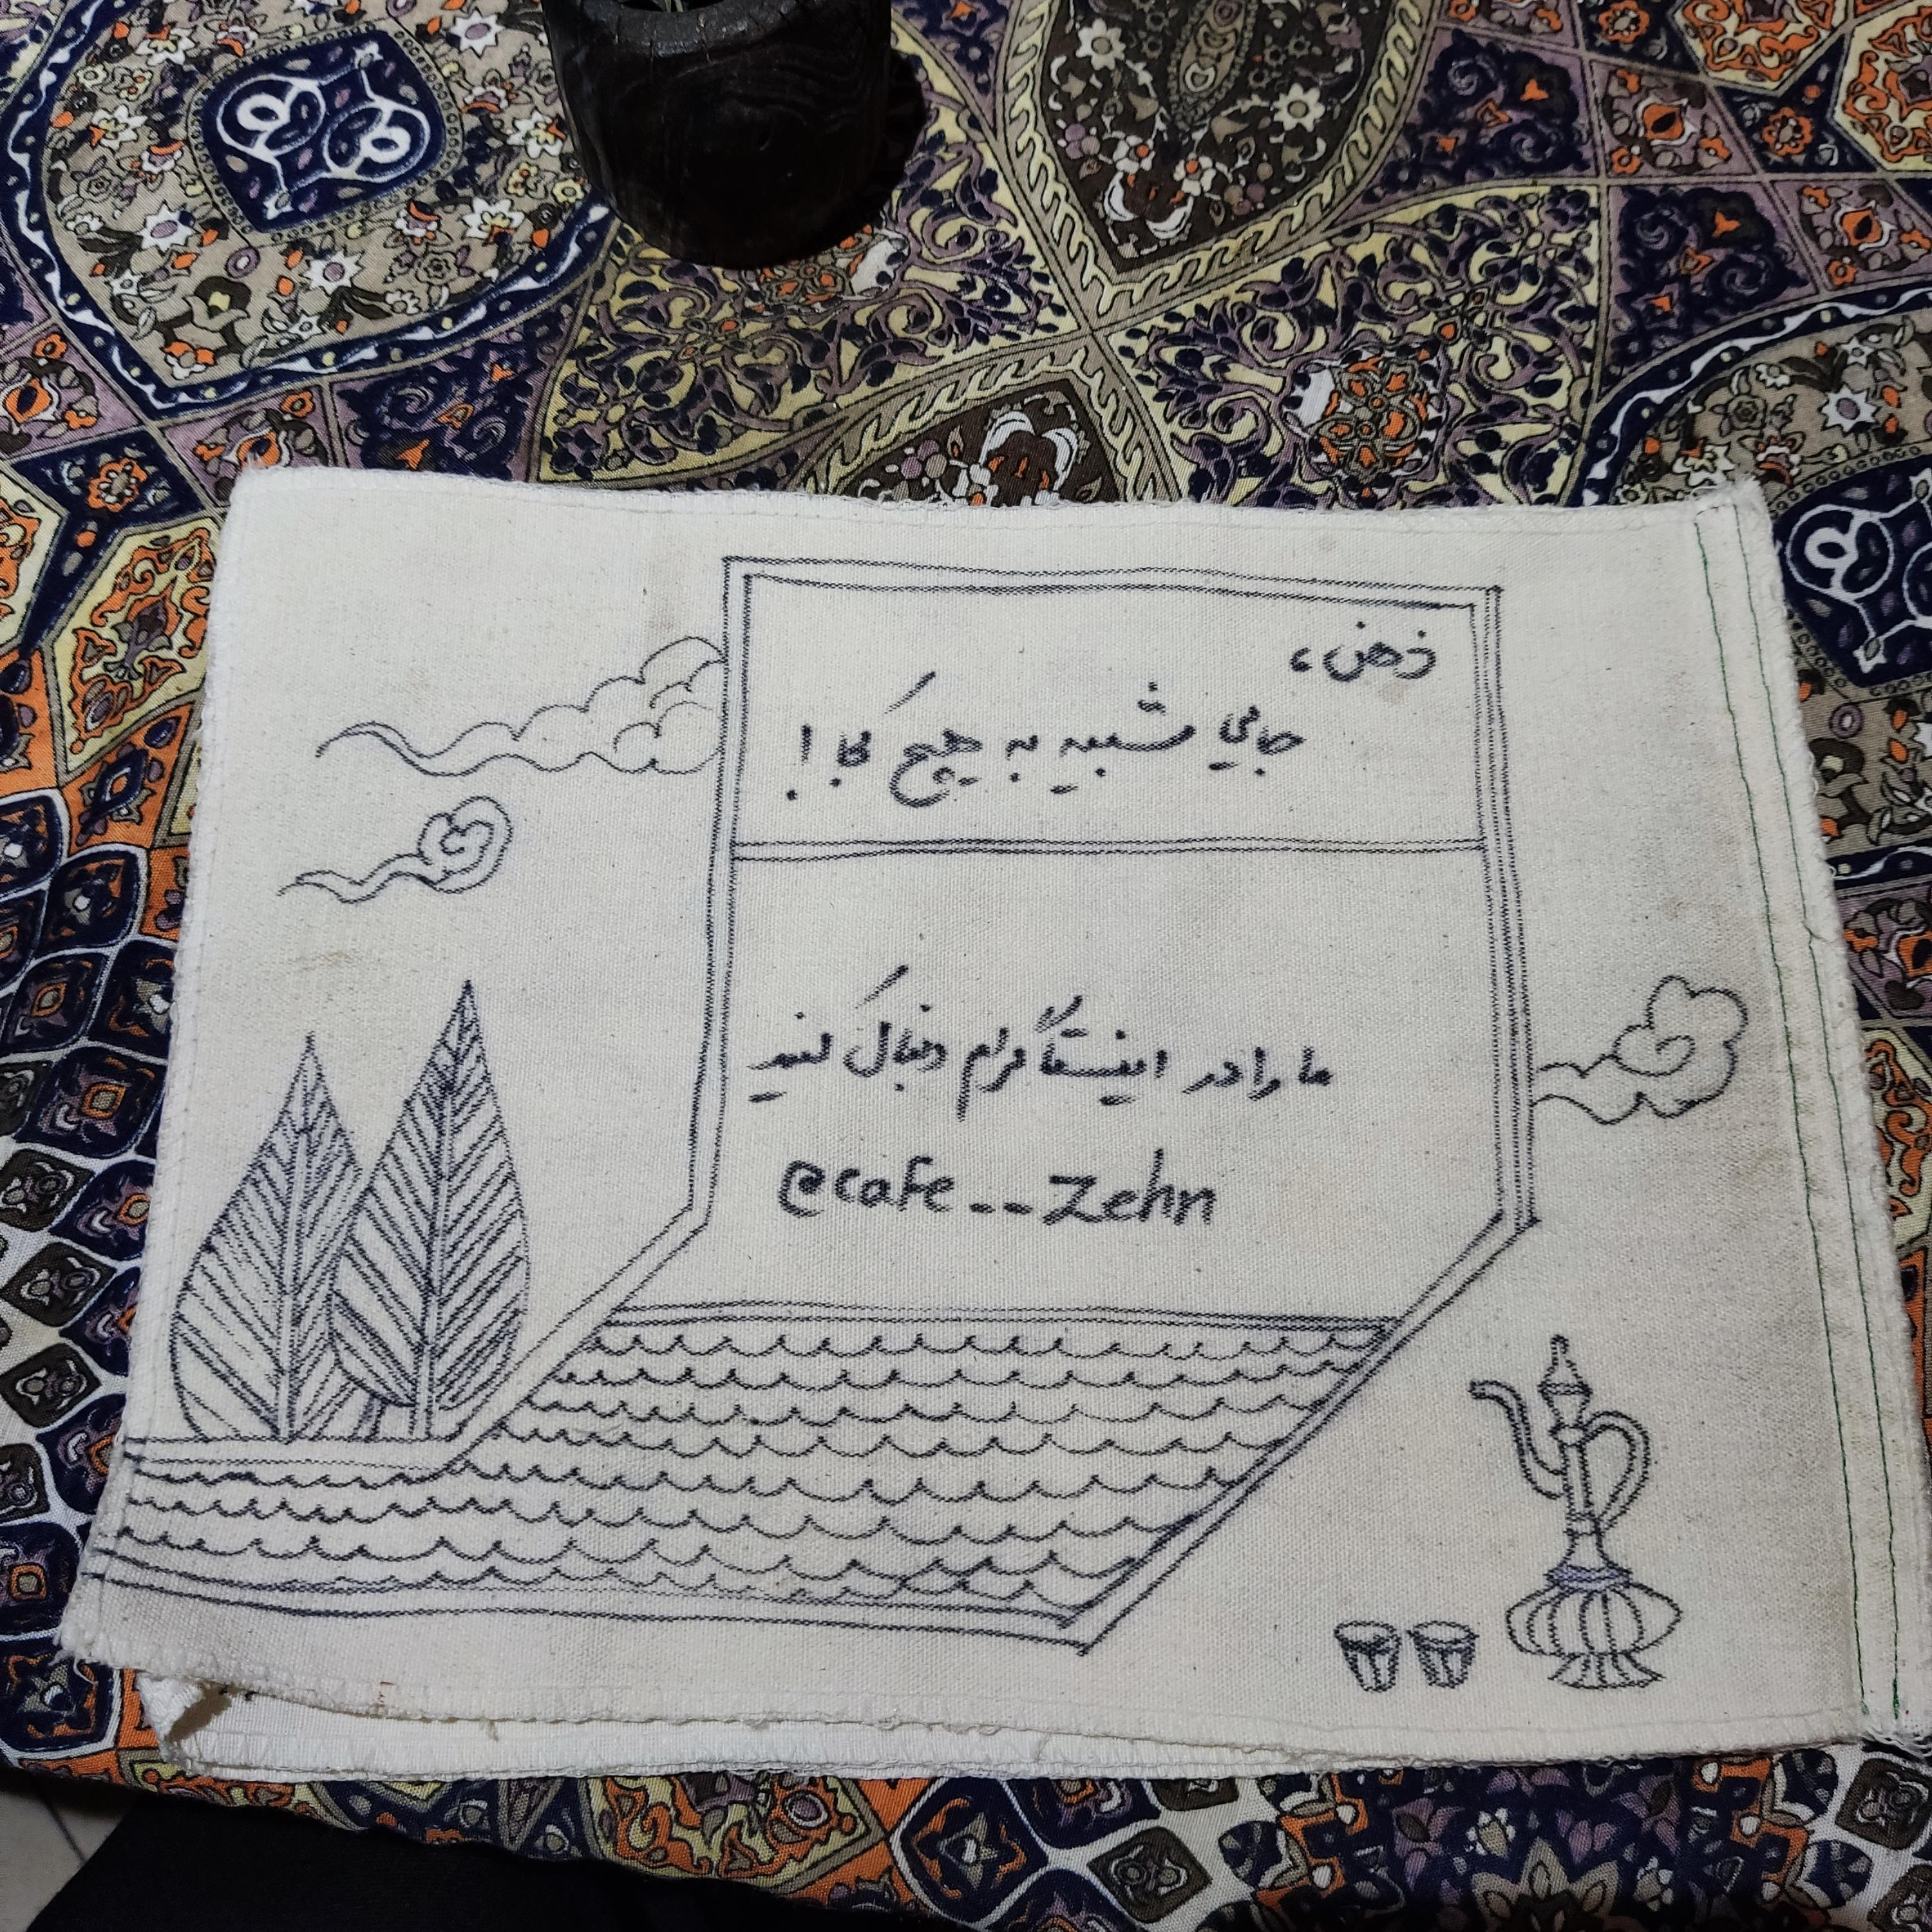 ذهن،
جایی شبیه به هیچ کجا!
ما را در اینستاگرام دنبال کنید
@cafe__Zehn